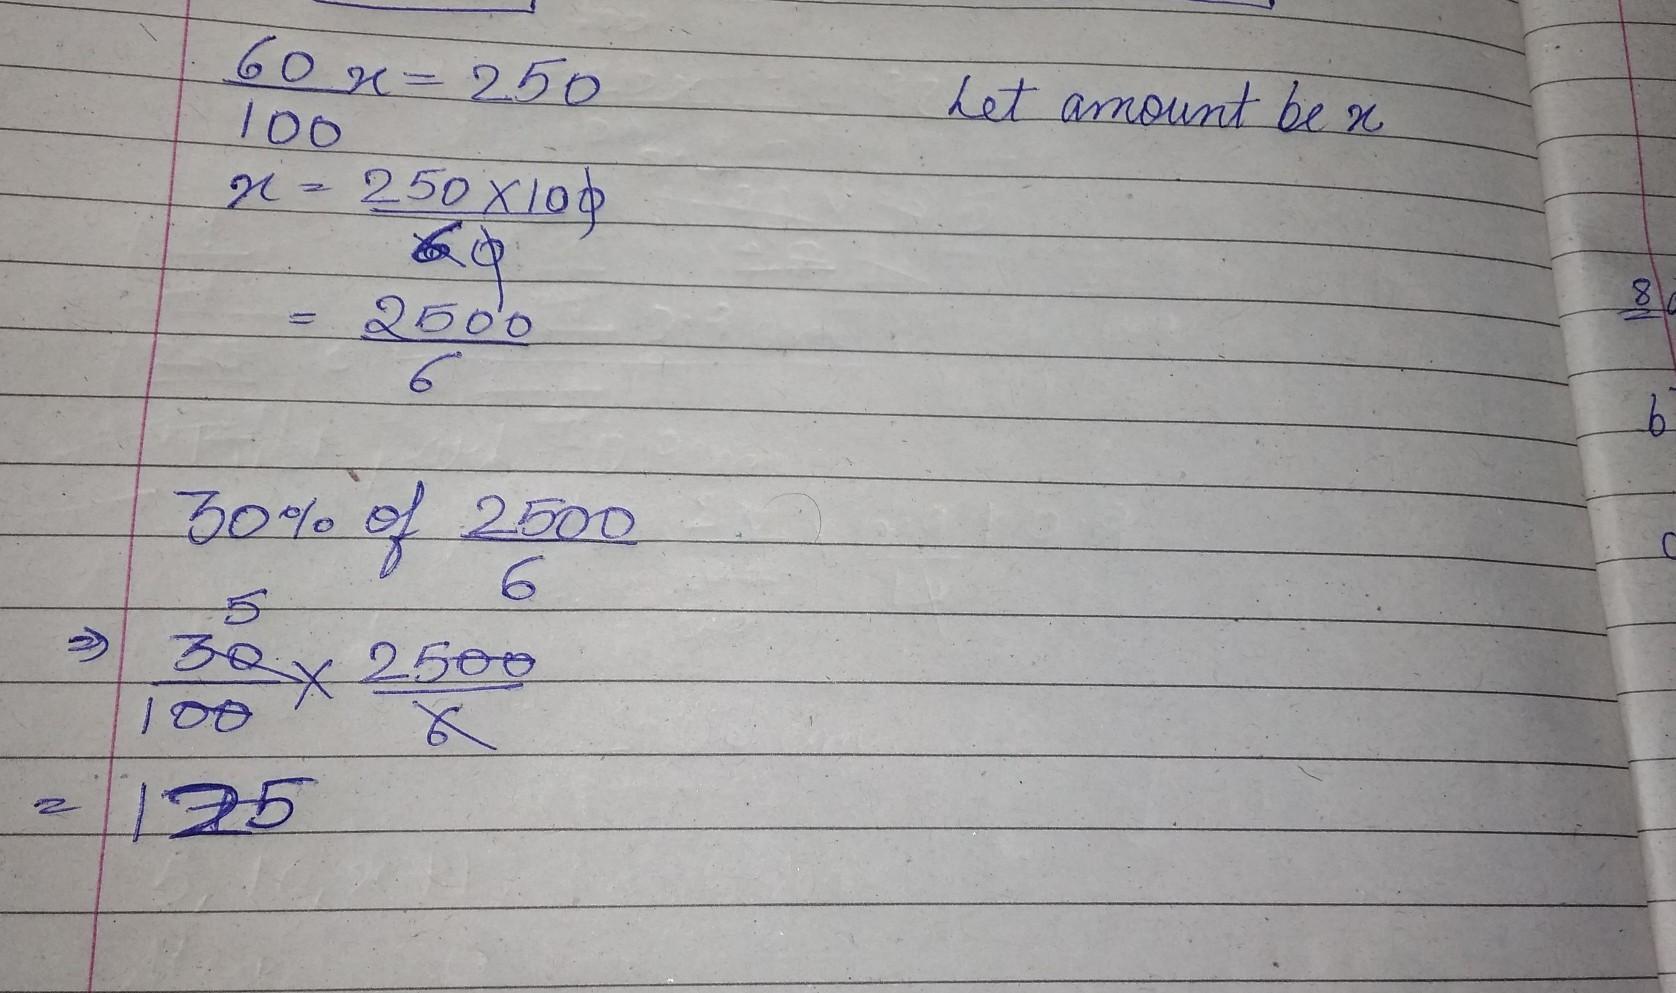 60/100 x = 250
Let amount be x
x = 250 x 100/60
= 2500/6
30% of 2500/6
5
⇒ 30/100 x 2500/6
= 125
8
b